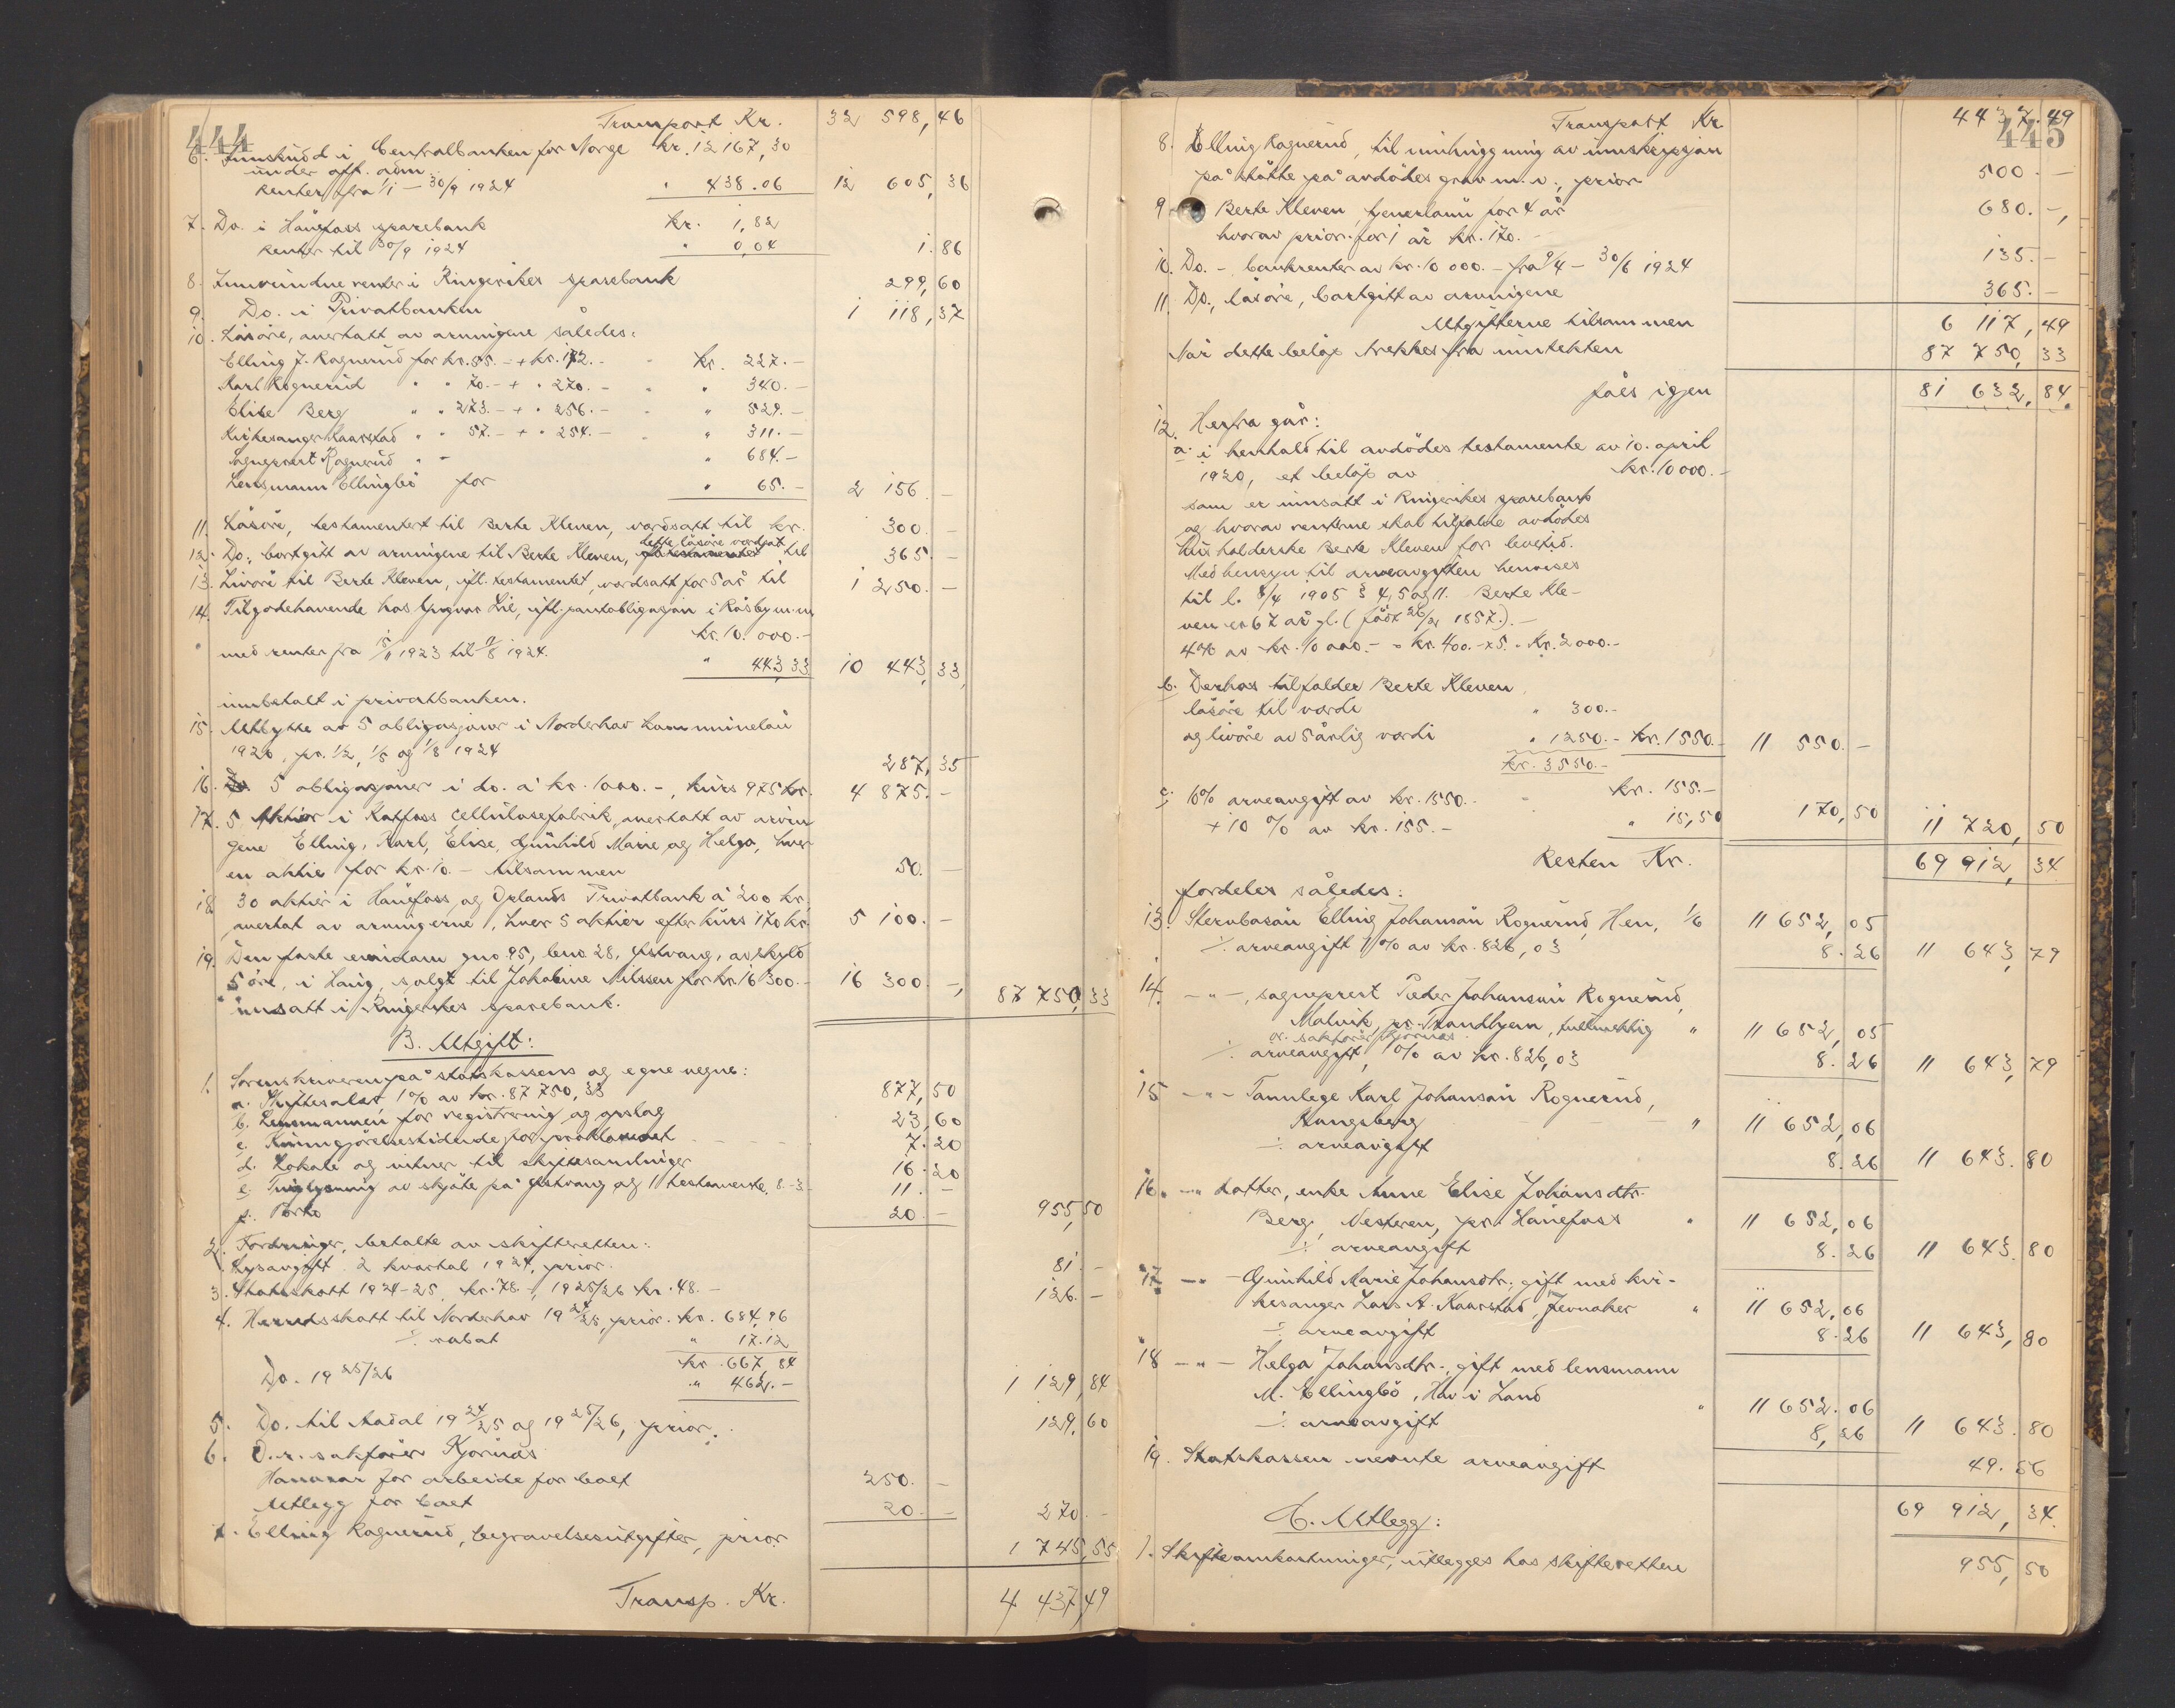 444
Transport Kr. 32 598,46
6. Innskudd i Centralbanken for Norge kr. 12 167,30
under off. adm.
renter fra 1/1 – 30/9 1924 " 438.06 12 605,36
7. Do. i Hønefoss sparebank kr. 1,82
renter til 30/9 1924 " 0,04 1.86
8. Innvundne renter i Ringerikes sparebank 299,60
9. Do. i Privatbanken 1 118,37
10. Løsøre, overtatt av arvingene således:
Elling J. Rognerud for kr. 55.- + kr. 172.- - kr. 227.-
Karl Rognerud " " 70.- + " 270.- - " 340.-
Elise Berg " " 273.- + " 256.- - " 529.-
Kirkesanger Kaarstad " " 57.- + " 254.- - " 311.-
Sogneprest Rognerud " - " 684.-
Lensmann Ellingbö for " 65.- 2 156.-
11. Løsøre, testamentert til Berte Kleven, verdsatt til kr. 300.-
12. Do., bortgitt av arvingene til Berte Kleven, dette løsøre verdsat til 365.-
13. Livøre til Berte Kleven, ifl. testamentet, verdsatt for 5 år til 1 250.-
14. Tilgodehavende hos Gunnar Lie, ifl. pantobligasjon i Råsby m.m. kr. 10.000.-
" med renter fra 15/11 1923 til 9/8 1924. " 443,33 10 443,33
innbetalt i privatbanken.
15. Utbytte av 5 obligasjoner i Norderhov kommunelån
1920, pr. 1/2, 1/5 og 1/8 1924 287,35
16. 5 obligasjoner i do. a kr. 1000.-, kurs 975 kr. 4 875.-
17. 5 Aktier i Katfoss cellulosefabrik overtatt av arvin
gene Elling, Karl, Elise, Gunhild Marie og Helga, hver
en aktie for kr. 10.- tilsammen 50.-
18 30 aktier i Hønefoss og Oplands Privatbank à 200 kr.
overtat av arvingerne, hver 5 aktier efter kurs 170 kr. 5 100.-
19. Den faste eiendom gno 95, bno. 28, Østvang, av skyld
5 öre, i Haug, solgt til Joholine Nilssen for kr. 16 300.- 16 300.-, 87 750,33
innsatt i Ringerikes sparebank.
B. Utgift:
1. Sorenskriveren på statskassens og egne vegne:
a. Skiftesalær, 1% av kr. 87 750,33 877,50
b. Lensmannen for registrering og opslag 23,60
c. Kunngjörelsestidende for proklamaet 7.20
d. Lokale og vitner til skiftesamlinger 16.20
e. Tinglysning av skjøte på Østvang og 1 testamente, 8.-3.- 11.-
f. Porto 20.- 955,50
2. Fordringer, betalte av skifteretten:
Lysavgift 2 kvartal 1924, prior. 81.-
3. Statsskatt 1924-25, kr. 78.-, 1925/26 kr. 48.- 126.-
4. Herredsskatt til Norderhov 1924/25, prior. kr. 684,96
÷ rabat " 17.12
kr. 667,84
Do. 1925/26 " 462.- 1 129,84
5. Do. til Aadal 1924/25 og 1925/26, prior. 129,60
6. O.r. sakförer Kjörnæs
Honorar for arbeide for boet 250.-
Utlegg for boet 20.- 270.-
7. Elling Rognerud, begravelsesutgifter, prior 1 745,55
Transp. Kr. 4 437,49
445
Transport Kr 4437.49
8. Elling Rognerud, til innhugging av innskripsjon
på støtte på avdødes grav m.v., prior 500.-
9. Berte Kleven, tjenerlønn for 4 år 680.-,
hvorav prior. for 1 år kr. 170.-
10. Do. - bankrenter av kr. 10 000.- fra 9/4 - 30/6 1924 135.-
11. Do., løsøre, bortgitt av arvingene 365.-
Utgifterne tilsammen 6 117,49
Når dette beløp trekkes fra inntekten 87 750,33
fåes igjen 81 632,84.
12. Herfra går:
a. i henhold til avdødes testamente av 10. april
1920, et beløp av kr. 10 000.-
som er innsatt i Ringerikes sparebank
og hvorav renterne skal tilfalde avdødes
husholderske Berte Kleven for levetid.
Med hensyn til arveavgiften henvises
til l. 8/4 1905 § 4, 5 og 11. Berte Kle-
ven er 67 år gl. (født 26/ 1857.).-
4% av kr. 10 000.- = kr. 400.- x 5. = Kr. 2000.-
b. Derhos tilfalder Berte Kleven
løsøre til verdi " 300.-
og livøre av 5 årlig verdi " 1250.- kr. 1550.- 11 550.-
kr. 3550.-
c. 10% arveavgift av kr. 1550.- " kr. 155.-
+ 10 % av kr. 155.- " 15,50 170,50 11 720,50
Resten Kr. 69 912,34
fordeles således:
13. Stenbasön Elling Johansön Rognerud, Hen, 1/6 11 652,05
÷ arveavgift 1% av kr. 826,03 8.26 11 643,79
14. -"-, sogneprest Peder Johansön Rognerud,
Malvik, pr. Trondhjem, fullmektig " 11 652,05
or. sakförer Kjörnæs
÷ arveavgift, 1% av kr. 826,03 8.26 11 643,79
15 -"- Tannlege Karl Johansön Rognerud,
Kongsberg " 11 652,06
÷ arveavgift 8.26 11 643.80
16. -"- datter, enke Anne Elise Johansdtr.
Berg, Vesteren, pr. Hönefoss " 11 652,06
÷ arveavgift 8.26 11 643.80
17. -"- Gunhild Marie Johansdtr., gift med kir-
kesanger Lars A. Kaarstad, Jevnaker " 11 652,06
÷ arveavgift 8.26 11 643,80
18 -"- Helga Johansdtr., gift med lensmann
M. Ellingbö, Hov i Land " 11 652.06
÷ arveavgift 8,26 11 643.80
19. Statskassen nevnte arveavgift 49.56
69 912,34.
C. Utlegg:
1. Skifteomkostninger, utlegges hos skifteretten 955,50